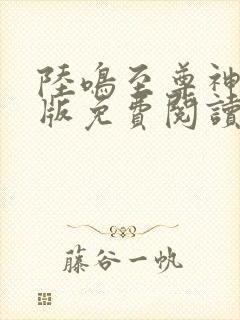 陸鳴至尊神
版免費閱讀
藤谷一帆